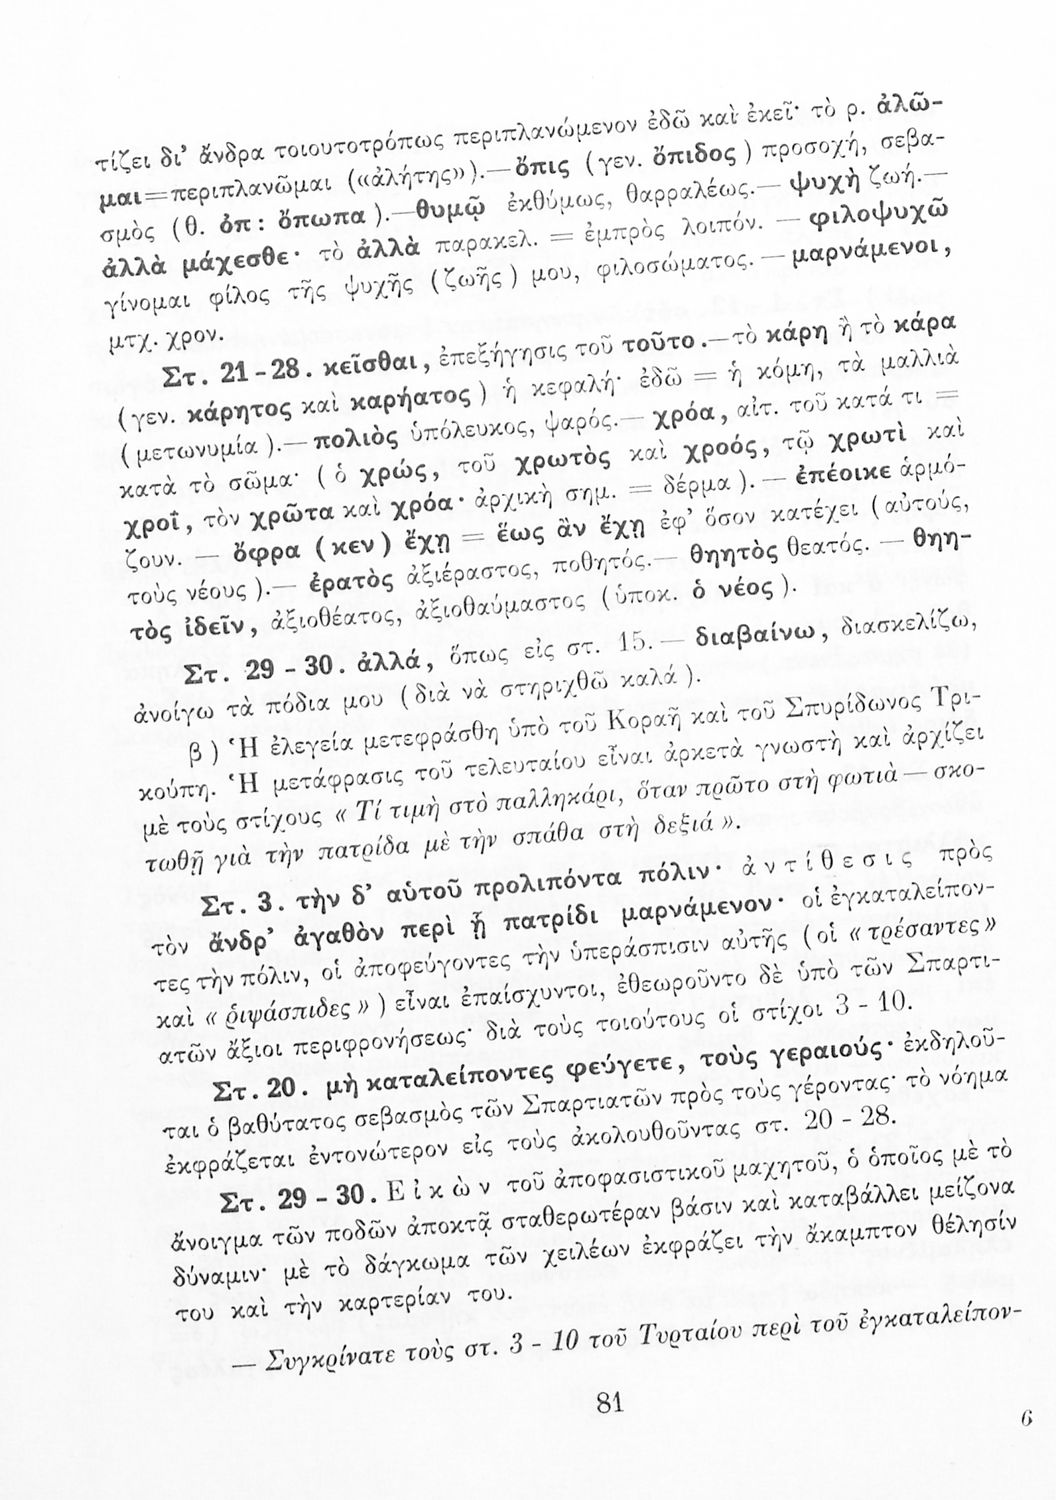 τίζει δι’ ἄνδρα τοιουτοτρόπως περιπλανώμενον ἐδῶ καὶ ἐκεῖ· τὸ ρ. ἀλῶ-
μαι=περιπλανῶμαι («ἀλήτης»).—ὄπις (γεν. ὄπιδος) προσοχή, σεβα-
σμὸς (θ. ὀπ : ὄπωπα).—θυμῷ ἐκθύμως, θαρραλέως.— ψυχὴ ζωή.—
ἀλλὰ μάχεσθε· τὸ ἀλλὰ παρακελ. = ἐμπρὸς λοιπόν. — φιλοψυχῶ
γίνομαι φίλος τῆς ψυχῆς (ζωῆς) μου, φιλοσώματος. — μαρνάμενοι,
μτχ. χρον.
Στ. 21-28. κεῖσθαι, ἐπεξήγησις τοῦ τοῦτο.—τὸ κάρη ἢ τὸ κάρα
(γεν. κάρητος καὶ καρήατος) ἡ κεφαλή· ἐδῶ = ἡ κόμη, τὰ μαλλιὰ
(μετωνυμία).— πολιὸς ὑπόλευκος, ψαρός.— χρόα, αἰτ. τοῦ κατά τι =
κατὰ τὸ σῶμα· (ὁ χρώς, τοῦ χρωτὸς καὶ χροός, τῷ χρωτὶ καὶ
χροΐ, τὸν χρῶτα καὶ χρόα· ἀρχικὴ σημ. = δέρμα). — ἐπέοικε ἁρμό-
ζουν. — ὄφρα (κεν) ἔχῃ = ἕως ἂν ἔχῃ ἐφ’ ὅσον κατέχει (αὐτούς,
τοὺς νέους).— ἐρατὸς ἀξιέραστος, ποθητός.— θηητὸς θεατός. — θηη-
τὸς ἰδεῖν, ἀξιοθέατος, ἀξιοθαύμαστος (ὑποκ. ὁ νέος).
Στ. 29 - 30. ἀλλά, ὅπως εἰς στ. 15. — διαβαίνω, διασκελίζω,
ἀνοίγω τὰ πόδια μου (διὰ νὰ στηριχθῶ καλά).
β) Ἡ ἐλεγεία μετεφράσθη ὑπὸ τοῦ Κοραῆ καὶ τοῦ Σπυρίδωνος Τρι-
κούπη. Ἡ μετάφρασις τοῦ τελευταίου εἶναι ἀρκετὰ γνωστὴ καὶ ἀρχίζει
μὲ τοὺς στίχους «Τί τιμὴ στὸ παλληκάρι, ὅταν πρῶτο στὴ φωτιὰ — σκο-
τωθῇ γιὰ τὴν πατρίδα μὲ τὴν σπάθα στὴ δεξιά».
Στ. 3. τὴν δ’ αὐτοῦ προλιπόντα πόλιν· ἀντίθεσις πρὸς
τὸν ἄνδρ’ ἀγαθὸν περὶ ᾗ πατρίδι μαρνάμενον· οἱ ἐγκαταλείπον-
τες τὴν πόλιν, οἱ ἀποφεύγοντες τὴν ὑπεράσπισιν αὐτῆς (οἱ «τρέσαντες»
καὶ «ῥιψάσπιδες») εἶναι ἐπαίσχυντοι, ἐθεωροῦντο δὲ ὑπὸ τῶν Σπαρτι-
ατῶν ἄξιοι περιφρονήσεως· διὰ τοὺς τοιούτους οἱ στίχοι 3 - 10.
Στ. 20. μὴ καταλείποντες φεύγετε, τοὺς γεραιούς· ἐκδηλοῦ-
ται ὁ βαθύτατος σεβασμὸς τῶν Σπαρτιατῶν πρὸς τοὺς γέροντας· τὸ νόημα
ἐκφράζεται ἐντονώτερον εἰς τοὺς ἀκολουθοῦντας στ. 20 - 28.
Στ. 29 - 30. Εἰκὼν τοῦ ἀποφασιστικοῦ μαχητοῦ, ὁ ὁποῖος μὲ τὸ
ἄνοιγμα τῶν ποδῶν ἀποκτᾷ σταθερωτέραν βάσιν καὶ καταβάλλει μείζονα
δύναμιν· μὲ τὸ δάγκωμα τῶν χειλέων ἐκφράζει τὴν ἄκαμπτον θέλησίν
του καὶ τὴν καρτερίαν του.
— Συγκρίνατε τοὺς στ. 3 - 10 τοῦ Τυρταίου περὶ τοῦ ἐγκαταλείπον-
81
6